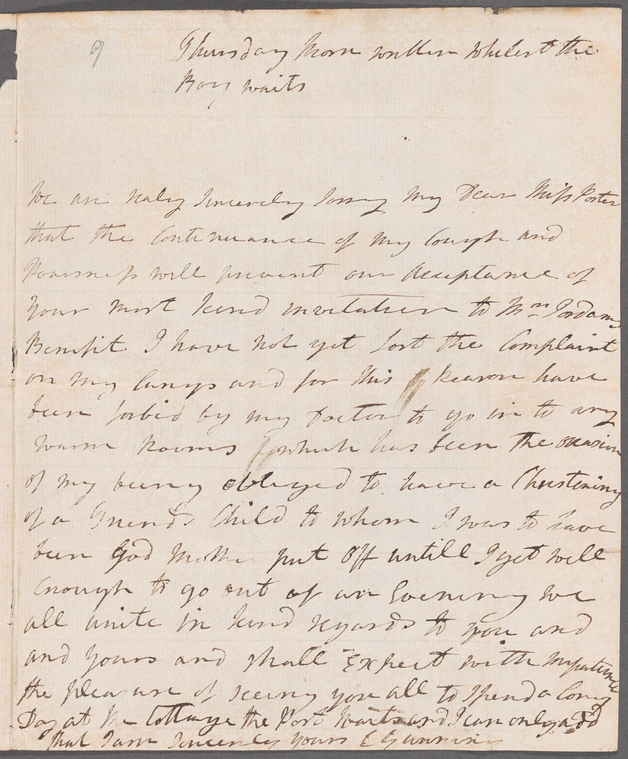 9
Thursday Morn written whilest the
Boy waits
We are realy sincerely sorry My Dear Miss Porter
that the Continuance of my Cough and
Hoarsness will prevent our Acceptance of
your most kind invitation to Mrs Jordans
Benefit I have not yet lost the Complaint
on my lungs and for this Reason have
been forbid by my Doctor to go in to any
warm Rooms which has been the occasion
of my being obleged to have a Christening
of a Friends Child to whom I was to have
been God Mother put off untill I get well
Enough to go out of an Evening We
all unite in kind regards to you and
and yours and shall Expect with impatience
the pleasure of seeing you all to spend a Long
Day at the Cottage the Post waits and I can only add
that I am sincerely yours E Gunning